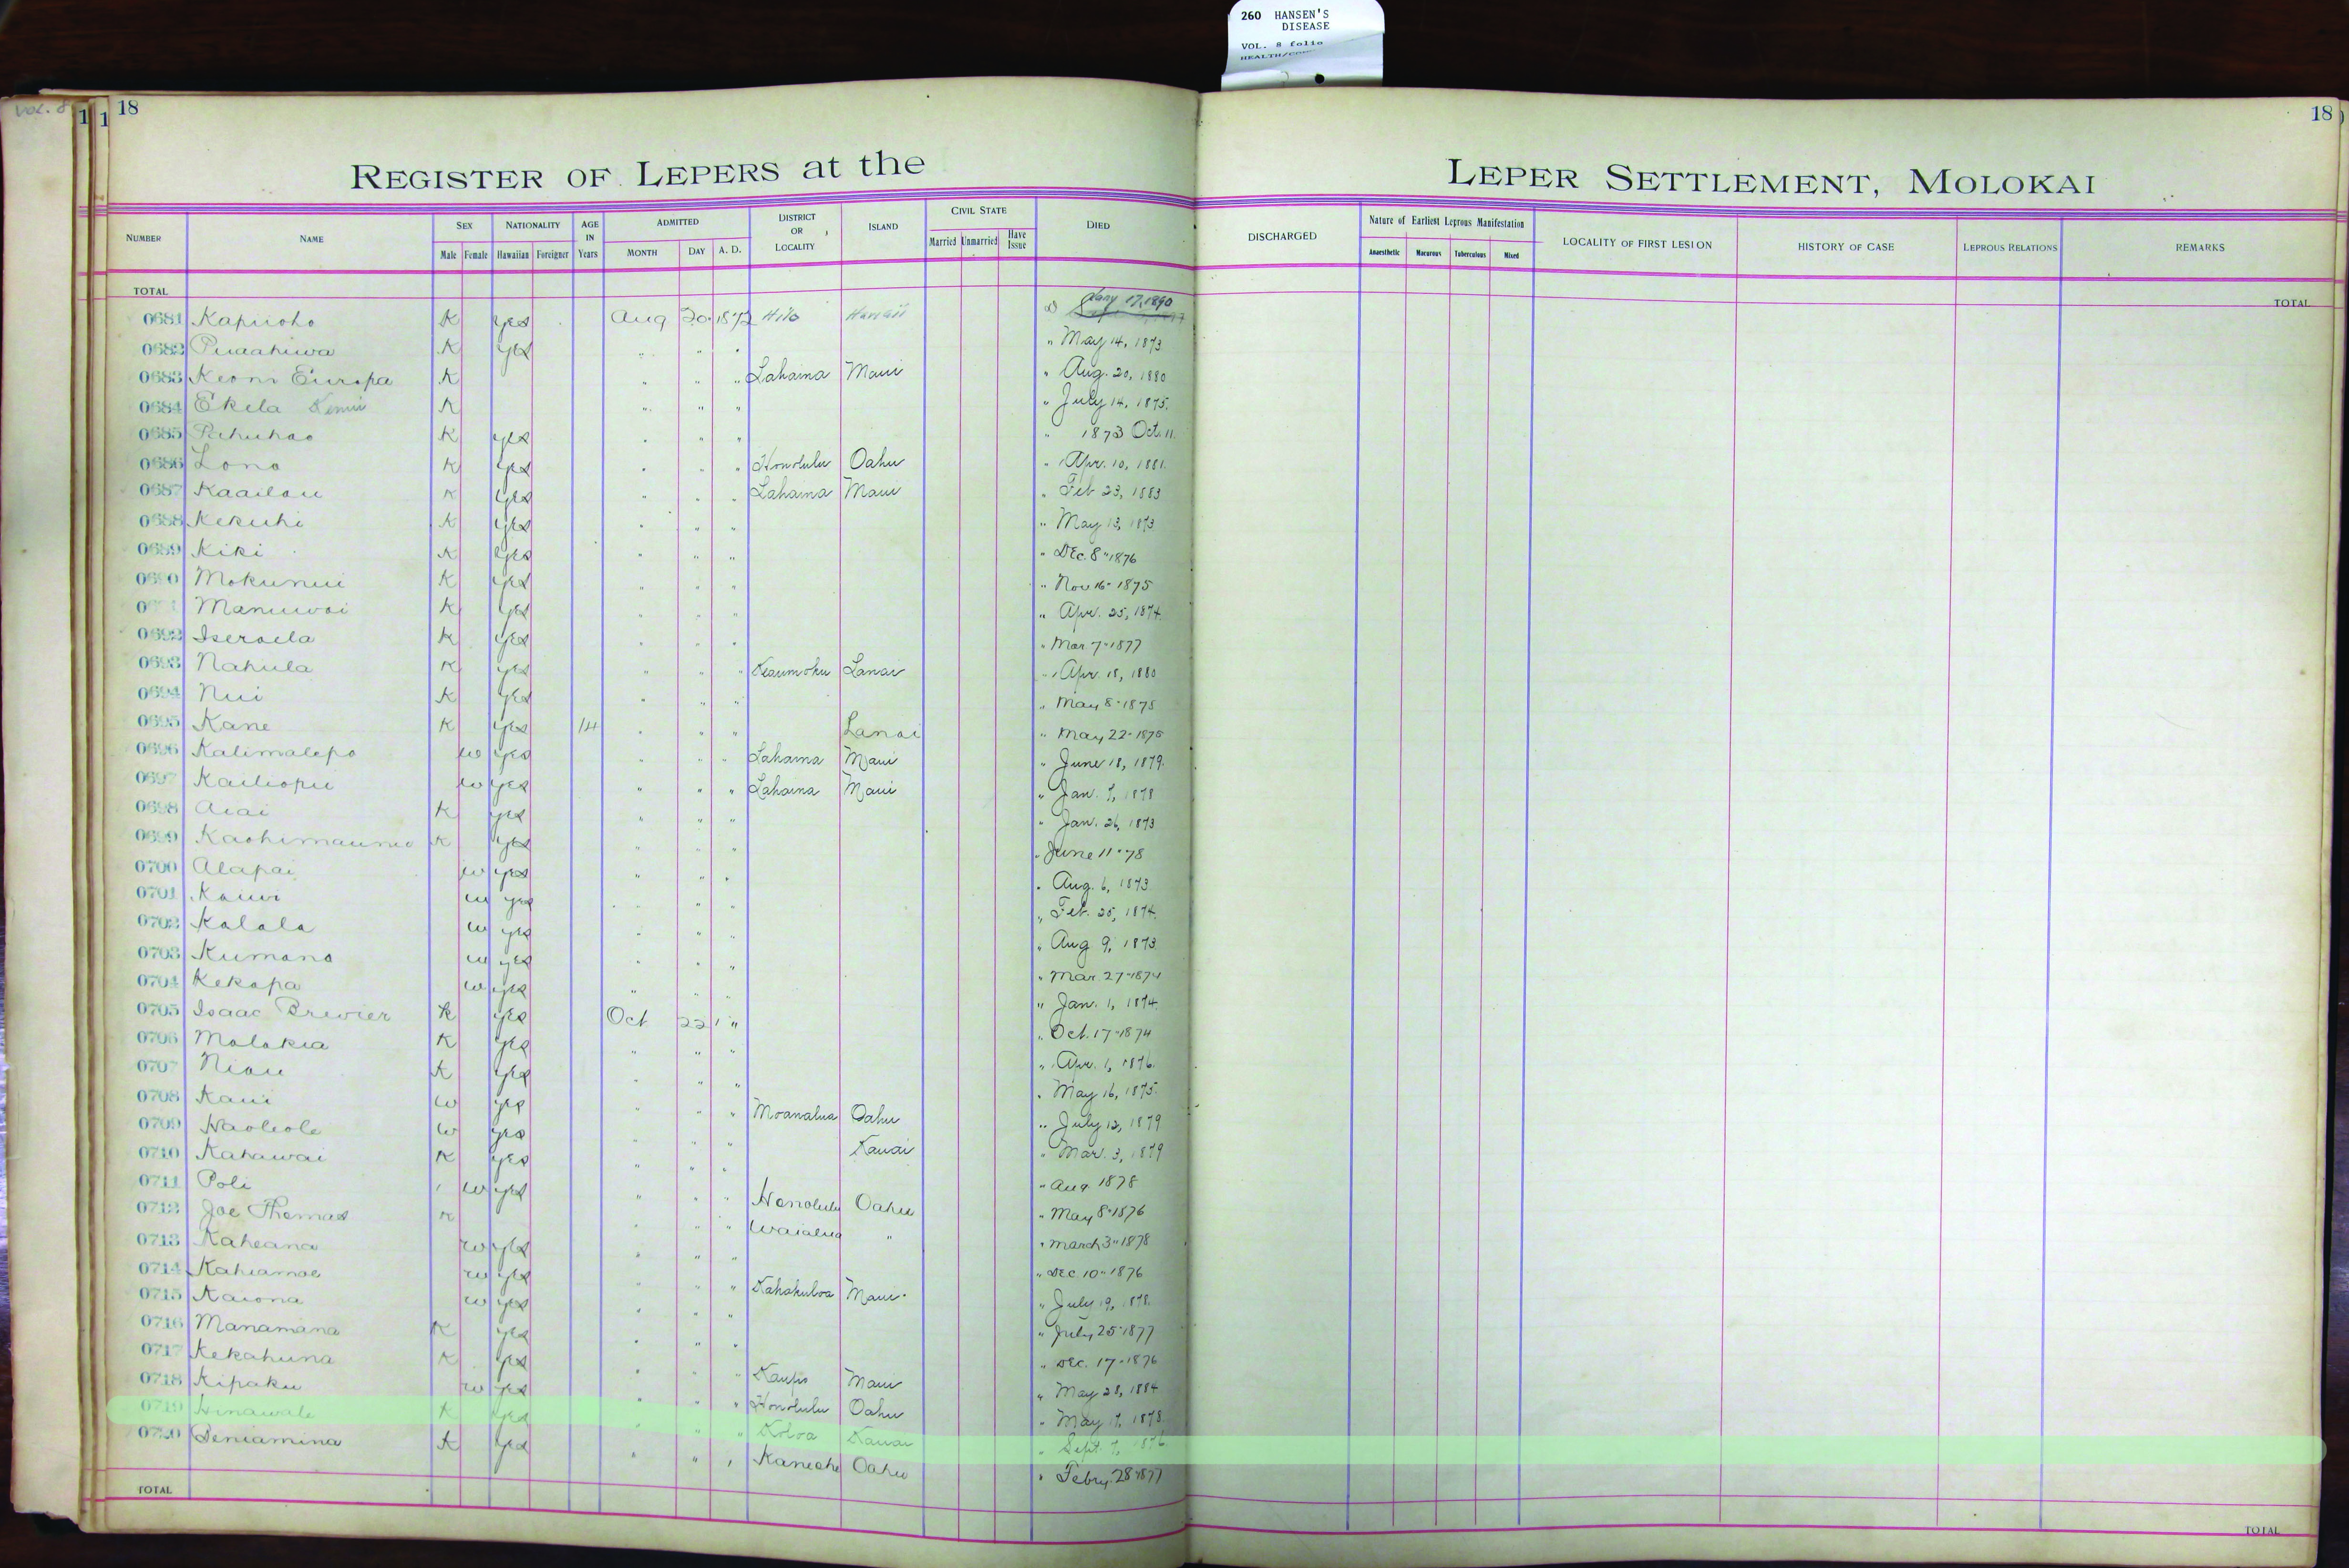 260 HANSEN'S
DISEASE
VOL. 8 folio
VOL. 8
1 1 18
18
REGISTER OF LEPERS at the LEPER SETTLEMENT, MOLOKAI
NUMBER NAME SEX NATIONALITY AGE IN Years ADMITTED DISTRICT OR LOCALITY ISLAND CIVIL STATE DIED DISCHARGED Nature of Earliest Leprous Manifestation LOCALITY OF FIRST LESION HISTORY OF CASE LEPROUS RELATIONS REMARKS
Male Female Hawaiian Foreigner MONTH DAY A. D. Married Unmarried Have Issue Anaesthetic Macurous Tuberculous Mixed
TOTAL TOTAL
0681 Kapuoho K yes Aug 20 1872 Hilo Hawaii D Jany 17, 1890
0682 Puaahiwa K yes " " " " May 14, 1873
0683 Keoni Europa K " " " Lahaina Maui " Aug. 20, 1880
0684 Ekela K " " " " July 14, 1875.
0685 Pahuhao K yes " " " " 1873 Oct. 11.
0686 Lono K yes " " " Honolulu Oahu " Apr. 10, 1881.
0687 Kaailau K yes " " " Lahaina Maui " Feb 23, 1883
0688 Kekuhi K yes " " " " May 13, 1873
0689 Kiki K yes " " " " DEc. 8" 1876
0690 Mokunui K yes " " " " Nov 16" 1875
Manuwai K yes " " " " Apr. 25, 1874.
0692 Iseraela K yes " " " " Mar 7" 1877
0693 Nahula K yes " " " Keaumoku Lanai " Apr. 18, 1880
0694 Nui K yes " " " " May 8" 1875
0695 Kane K yes 14 " " " Lanai " May 22" 1875
0696 Kalimalepo w yes " " " Lahaina Maui " June 18, 1879.
0697 Kailiopu w yes " " " Lahaina Maui " Jan. 7, 1878
0698 Aiai K yes " " " " Jan. 26, 1873
0699 K yes " " " " June 11" 78
0700 Alapai w yes " " " " Aug. 6, 1873
0701 Kauwi w yes " " " " Feb. 25, 1874.
0702 Kalala w yes " " " " Aug 9, 1873
0703 Kumano w yes " " " " Mar 27" 1874
0704 Kekapa w yes " " " " Jan. 1, 1874.
0705 Isaac Brewier K yes Oct 22 " " Oct. 17" 1874
0706 Molokia K yes " " " " Apr. 1, 1876.
0707 Niau K yes " " " " May 16, 1875.
0708 Kaui w yes " " " Moanalua Oahu " July 12, 1879
0709 Haoleole w yes " " " Kauai " Mar. 3, 1879
0710 Kahawai K yes " " " " Aug 1878
0711 Poli w yes " " " Honolulu Oahu " May 8" 1876
0712 Joe Thomas K " " " Waialua " " March 3" 1878
0713 Kaheana w yes " " " " DEc 10" 1876
0714 Kahiamoe w yes " " " Kahakuloa Maui " July 19, 1878.
0715 Kaiona w yes " " " " July 25" 1877
0716 Manamana K yes " " " " DEc. 17" 1876
0717 Kekahuna K yes " " " Kaupo Maui " May 28, 1884
0718 Kipaku w yes " " " Honolulu Oahu " May 17, 1878.
0719 Hinawale K yes " " " Koloa Kauai " Sept. 7, 1876
0720 Beniamina K yes " " " Kaneohe Oahu " Febry. 28" 1877
TOTAL TOTAL